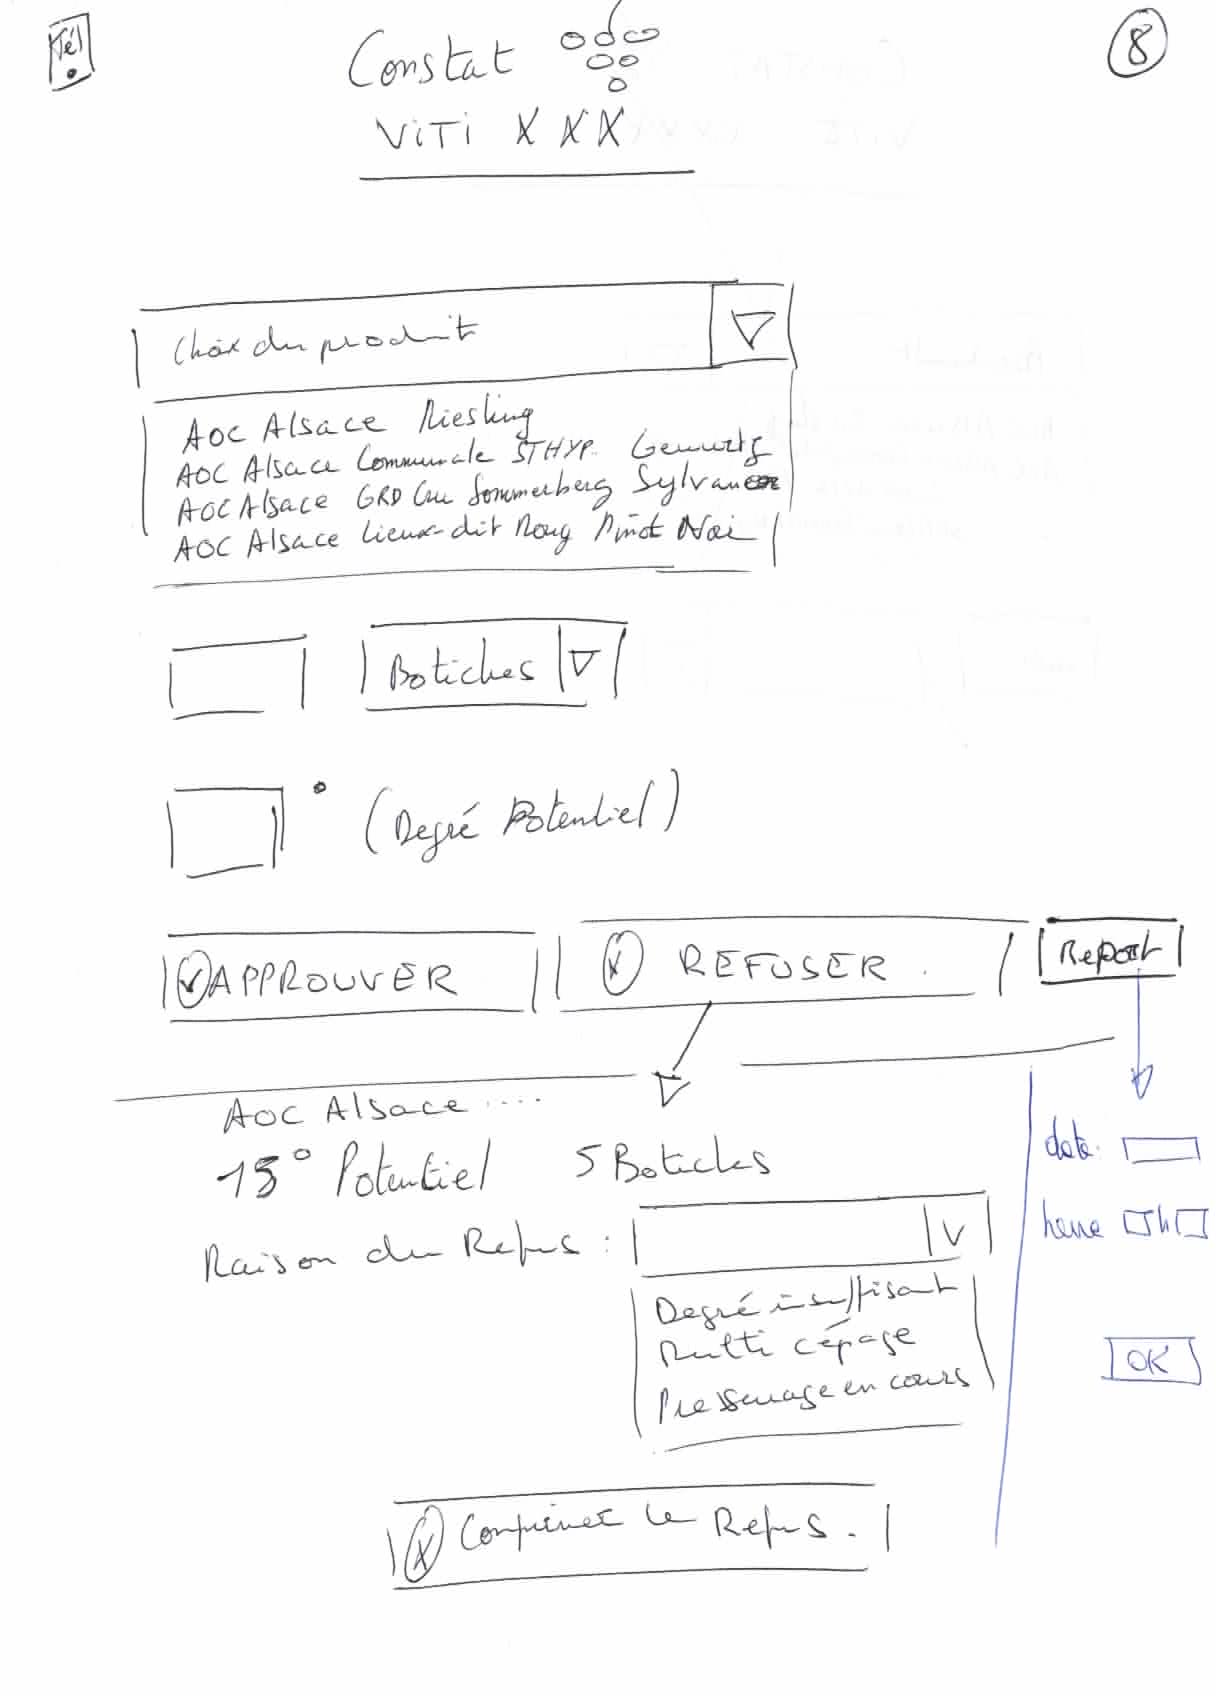 Tél
8
Constat
VITI XXX
Choix du produit
AOC Alsace Riesling
AOC Alsace Communale STHYP. Gewurtz
AOC Alsace GRD Cru Sommerberg Sylvaner
AOC Alsace Lieux-dit Roug Pinot Noir
Botiches
° (Degré Potentiel)
APPROUVER
X REFUSER.
Report
AOC Alsace ....
° Potentiel 5 Botiches
Raison du Refus :
Degré insuffisant
Multi cépage
Pressurage en cours
date:
heure h
OK
X Confirmer le Refus.